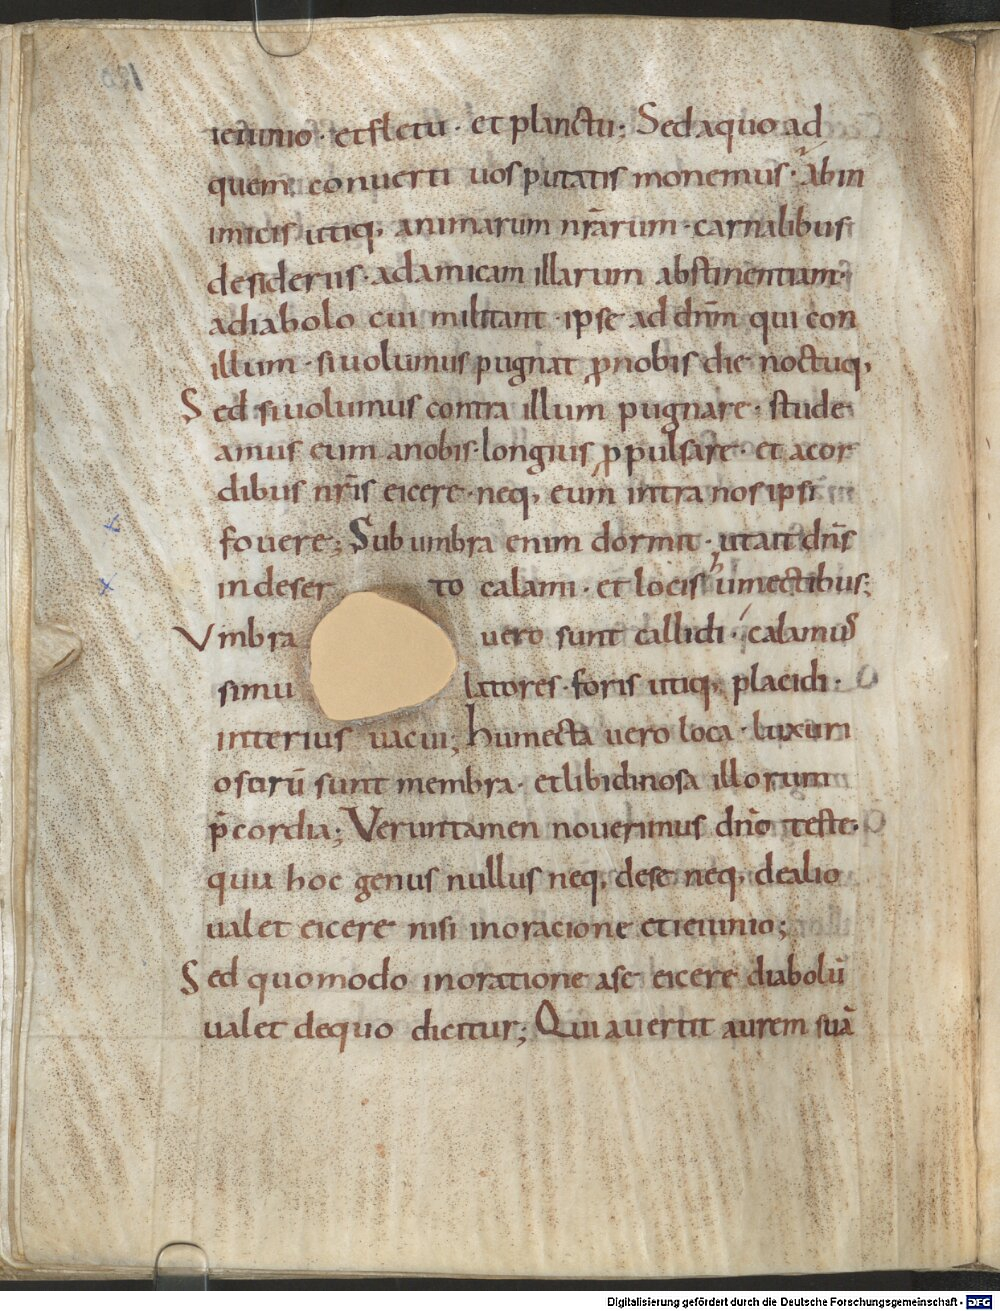 ieiunio · et fletu · et planctu; Sed a quo ad
quem conuerti uos putatis monemus · ab in
imicis utiq; animarum nr̄arum · carnalibus
desideriis · ad amicam illarum abstinentiam ·
a diabolo cui militant · ipse ad dn̄m qui con
illum · si uolumus pugnat ꝓ nobis die noctuq;
Sed si uolumus contra illum pugnare · stude
amus eum a nobis · longius ꝓpulsare · et a cor
dibus nr̄is eicere · neq; eum intra nos ipsi
fouere; Sub umbra enim dormit · ut ait dn̄s
in deserto calami · et locis humectibus;
Vmbra uero sunt callidi · calamus
simulatores · foris utiq; placidi ·
interius uacui; humecta uero loca · luxuri
osorū sunt membra · et libidinosa illorum
p̄cordia; Veruntamen nouerimus dn̄o teste ·
quia hoc genus nullus neq; de se neq; de alio
ualet eicere nisi in oracione et ieiunio;
Sed quomodo in oratione a se eicere diabolū
ualet de quo dicitur; Qui auertit aurem suā
Digitalisierung gefördert durch die Deutsche Forschungsgemeinschaft - DFG